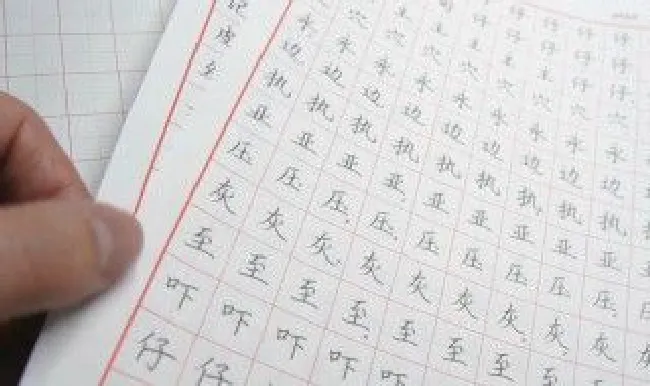 仔 仔 仔 仔
主 主 主 主 主 仔 仔
穴 穴 穴 穴 穴 穴 穴 穴
永 永 永 永 永 永 永 永 永
边 边 边 边 边 边 边 边 边
执 执 执 执 执 执 执 执 执
亚 亚 亚 亚 亚 亚 亚 亚 亚
压 压 压 压 压 压 压 压 压 压
灰 灰 灰 灰 灰 灰 灰 灰 灰 灰
至 至 至 至 至 至 至 至
吓 吓 吓 吓 吓
仔 仔